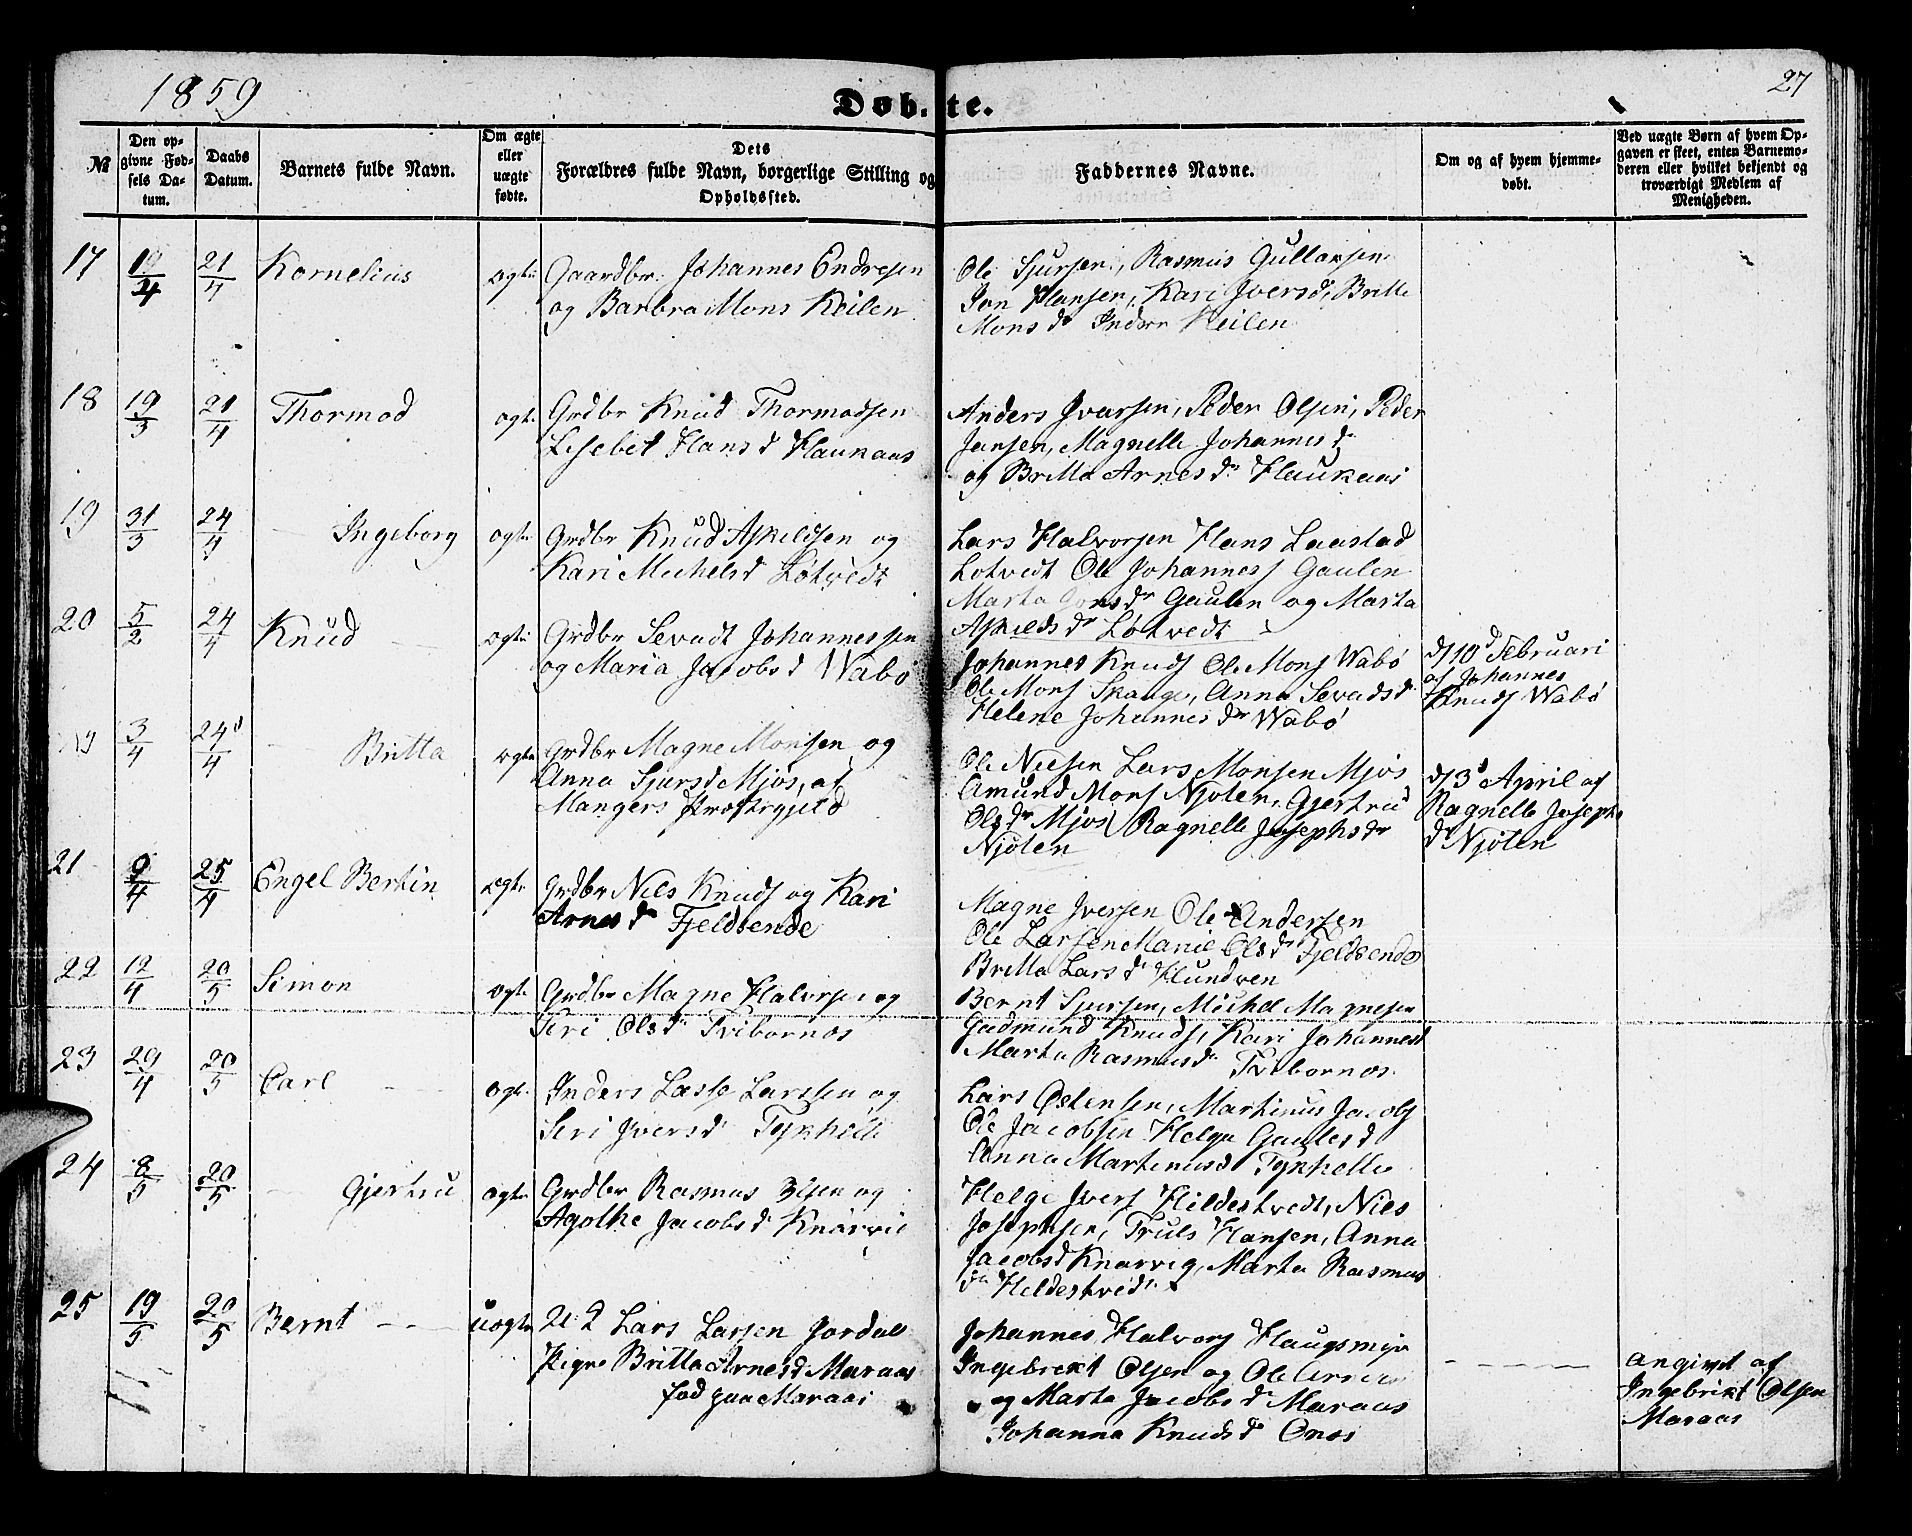 1859
Døb-te.
27
№
Den op-
givne Fød-
sels Da-
tum.
Daabs
Datum.
Barnets fulde Navn.
Om ægte
eller
uægte
fødte.
Dets
Forældres fulde Navn, borgerlige Stilling og
Opholdssted.
Faddernes Navne.
Om og af hvem hjemme-
døbt.
Ved uægte Børn af hvem Op-
gaven er skeet, enten Barnemo-
deren eller hvilket bekjendt og
troværdigt Medlem af
Menigheden.
17 19/4 21/4 Kornelius ægte Gaardbr. Johannes Endresen
og Barbra Mons Keilen
Ole Sjursen, Rasmus Gullaksen
Jon Hansen, Kari Iversd, Britte
Mons dr Indre Keilen
18 19/3 21/4 Thormod ægte Grdbr Knud Thormodsen
Lisebet Hans d Haukaas
Anders Ivarsen, Peder Olsen, Peder
Jansen, Magnelle Johannes dr
og Britta Arnes dr Haukaas
19 31/3 24/4 Ingeborg ægte Grdbr Knud Askildsen og
Kari Michelsd Løtvedt
Lars Halvorsen Hans Laastad
Lotvedt Ole Johannes Gaulen
Marta dr Gaulen og Marta
Askilds dr Løtvedt
20 5/2 24/4 Knud ægte Grdbr Sevadt Johannessen
og Maria Jacobs d Wabø
Johannes Knuds Ole Mons Wabø
Ole Mons Skauge, Anna Sevads dr
Helene Johannes dr Wabø
d 10d Februari
af Johannes
Knuds Wabø
3/4 24/4 Britta ægte Grdbr Magne Monsen og
Anna Sjurs d Mjøs, af
Mangers Præstegjeld
Ole Nielsen Lars Monsen Mjøs
Amund Mons Njøten, Gjertrud
Ols dr Mjøs Ragnelle Josephs dr
Njøten
d 3d April af
Ragnelle Josephs
dr Njøten
21 9/4 25/4 Engel Bertin ægte Grdbr Nils Knuds og Kari
Arnes dr Fjeldsende
Magne Iversen Ole Andersen
Ole Larsen Marie Ols dr Fjeldsende
Britta Lars d Hundven
22 12/4 20/5 Simon ægte Grdbr Magne Halvorsen og
Seri Ols d Tvibornos
Bernt Sjursen, Michel Magnesen
Gudmund Knuds, Kari Johannesd
Marta Rasmusd Tvibornos
23 29/4 20/5 Carl ægte Inders Lasse Larssen og
Seri Ivers d Fynhelle
Lars Ostensen, Martinus Jacobs
Ole Jacobsen Helga Gaules d
Anna Martinusd Fynhelle
24 8/5 20/5 Gjertru ægte Grdbr Rasmus Olsen og
Agothe Jacobs d Knarvig
Helge Ivers Hildestvedt, Niels
Josephsen, Truls Hansen, Anna
Jacobs d Knarvig, Marta Rasmus
dr Heldestvedt
25 19/5 20/5 Bernt uægte Lars Larsen Jordal
Pige Britta Arnes d Maraas
fød paa Maraas
Johannes Halvors Haugsmyr
Ingebrikt Olsen og Ole
og Marta Jacobs d Maraas
Johanna Knuds d Onos
angivet af
Ingebrikt Olsen
Maraas